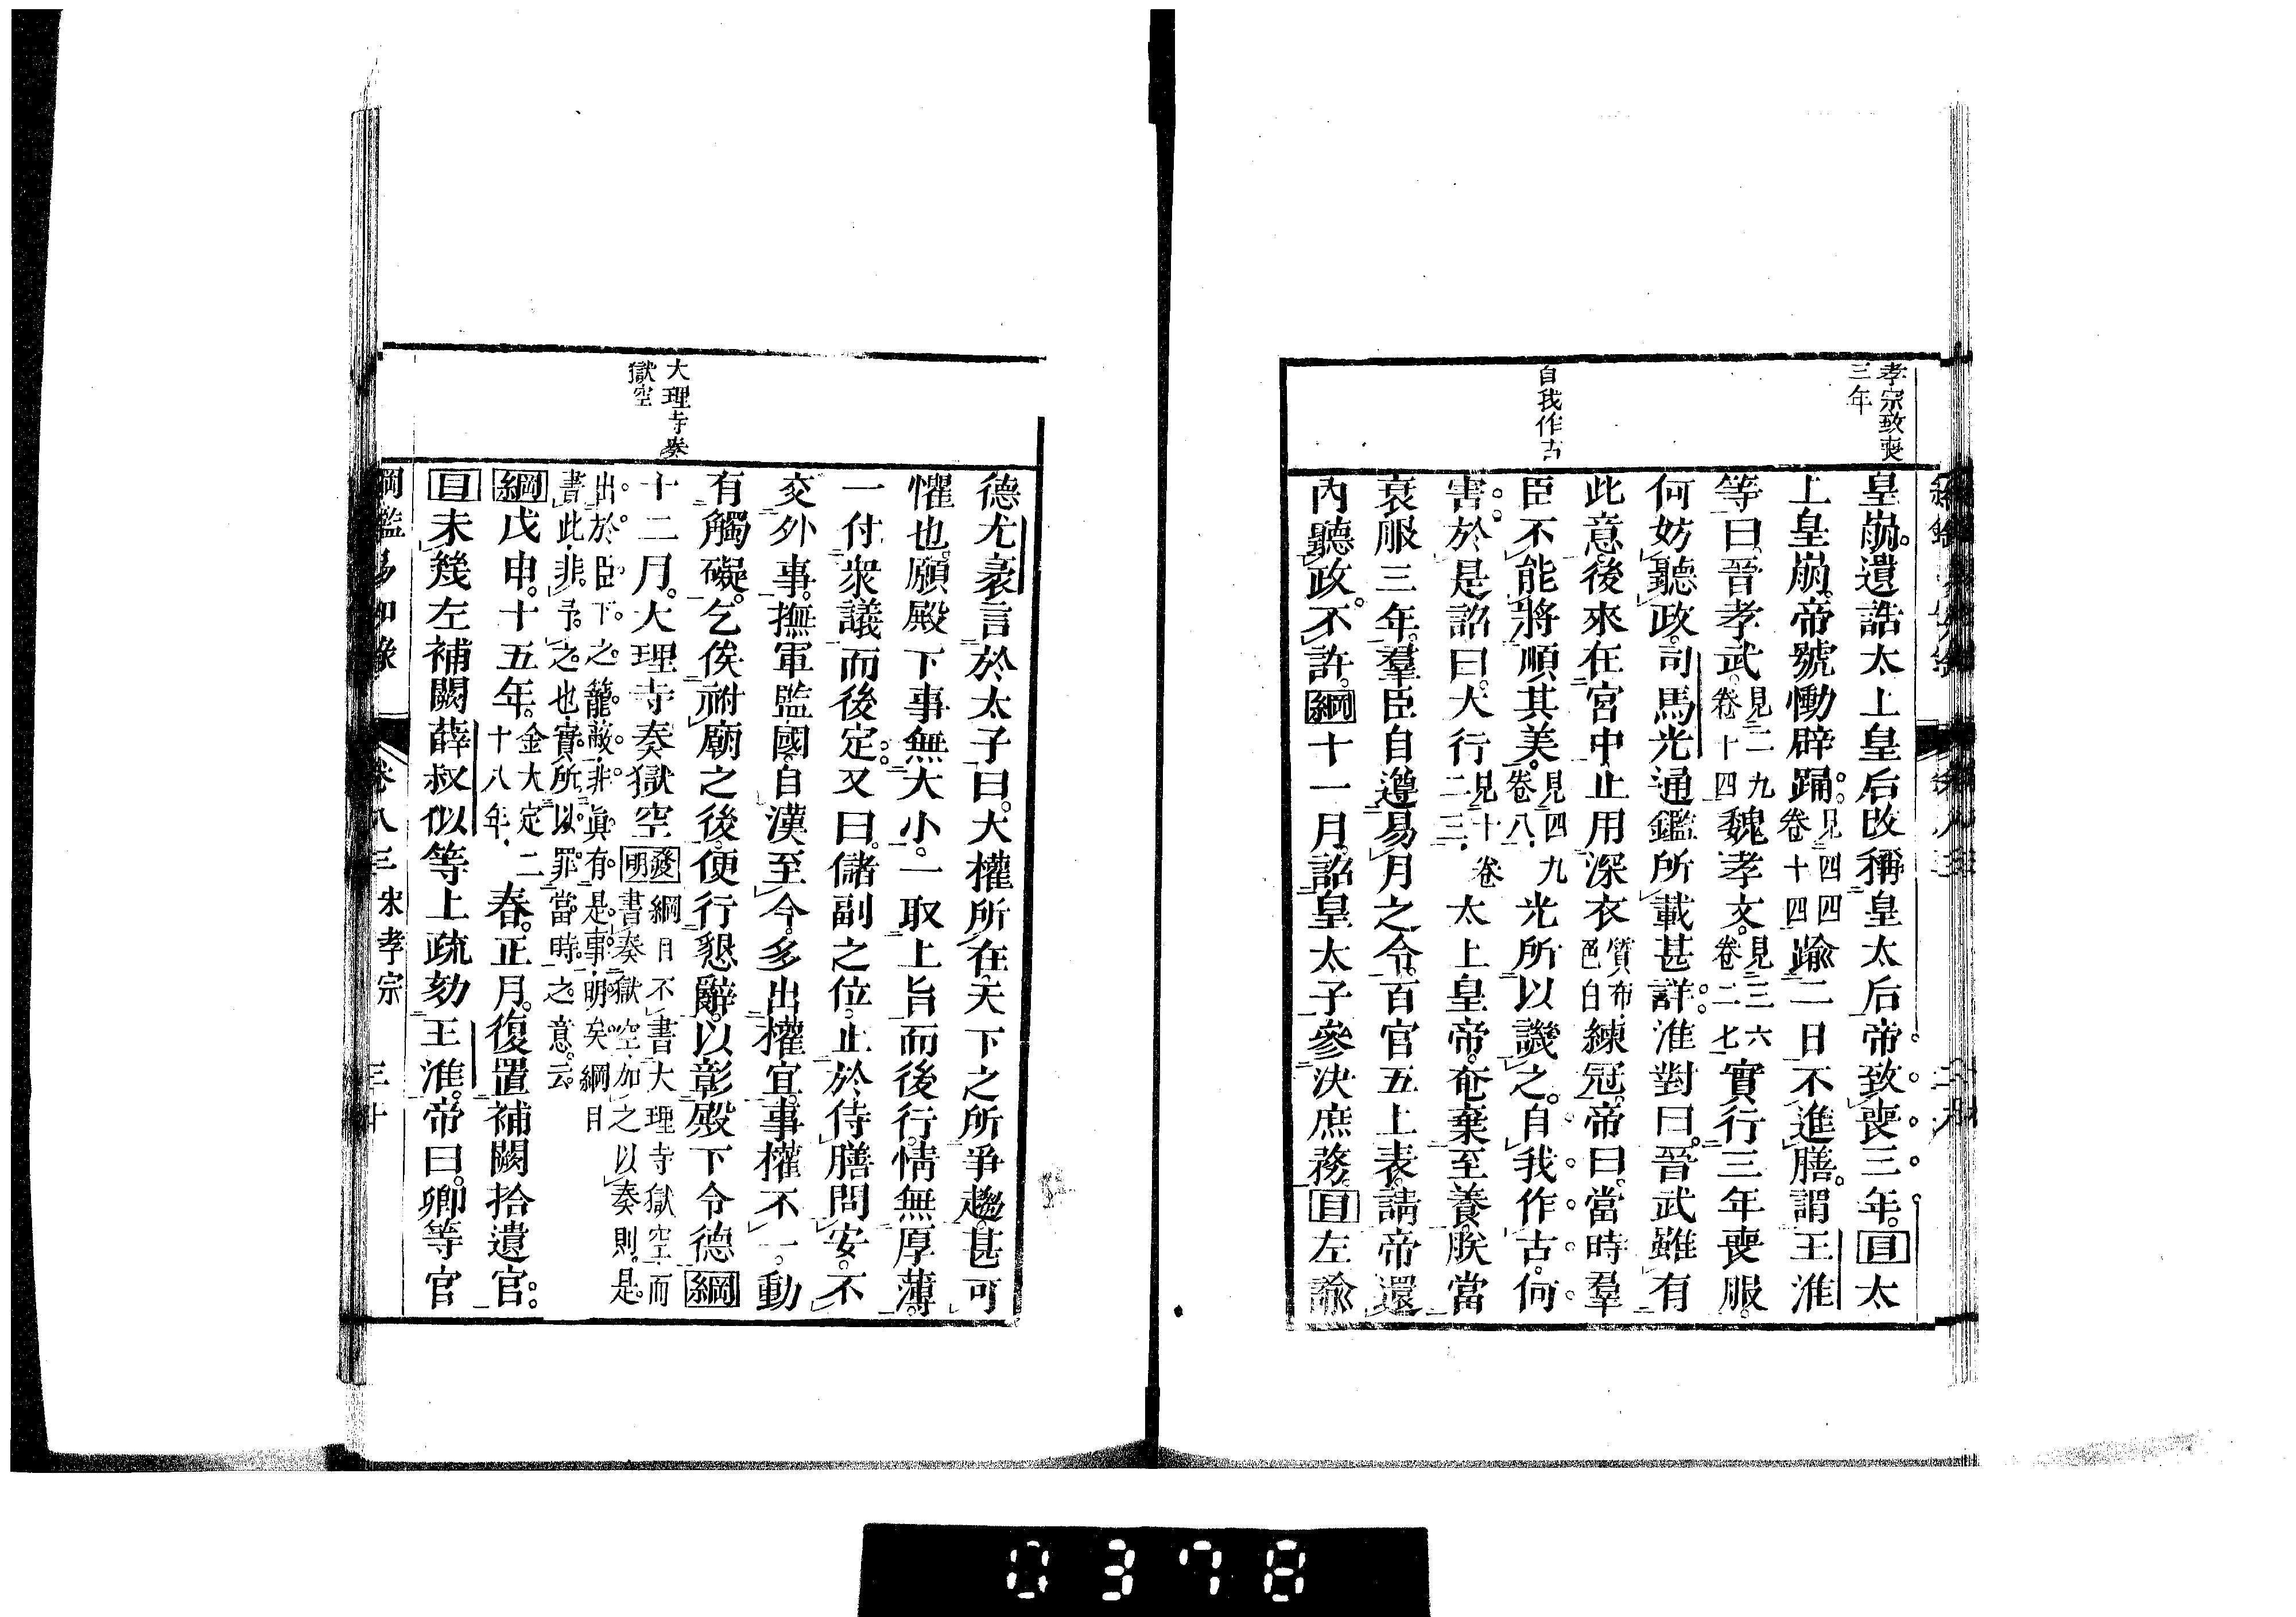 孝宗致喪
三年
自我作古
皇崩。遺誥太上皇后改稱皇太后帝致喪三年。目太
上皇崩。帝號慟辟踊。見四四卷十四踰二日不進膳。謂王淮
等曰。晉孝武。見二九卷十四魏孝文。見三六卷二七實行三年喪服。
何妨聽政。司馬光通鑑所載甚詳。淮對曰。晉武雖有
此意後來在宮中止用深衣質布色白練冠。帝曰。當時羣
臣不能將順其美。見四九卷八光所以譏之。自我作古。何
害。於是詔曰。大行見十卷二三太上皇帝。奄棄至養。朕當
衰服三年。羣臣自遵易月之令。百官五上表。請帝還
內聽政。不許。綱十一月。詔皇太子參決庶務。目左諭
大理寺奏
獄空
德尤袤言於太子曰。大權所在。天下之所爭趨。甚可
懼也。願殿下事無大小。一取上旨而後行。情無厚薄。
一付衆議而後定。又曰。儲副之位。止於侍膳問安。不
交外事。撫軍監國。自漢至今。多出權宜。事權不一。動
有觸礙。乞俟祔廟之後。便行懇辭。以彰殿下令德綱
十二月。大理寺奏獄空發明綱目不書大理寺獄空。而書奏獄空。加之以奏。則是。
出於臣下之籠蔽。非眞有是事。明矣。綱目
書此。非予之也。實所以罪當時之意云。
綱戊申。十五年。金大定二十八年。春。正月。復置補闕拾遺官。
目未幾左補闕薛叔似等上疏劾王淮。帝曰。卿等官
綱鑑易知錄 卷八三 宋孝宗 三十
0378